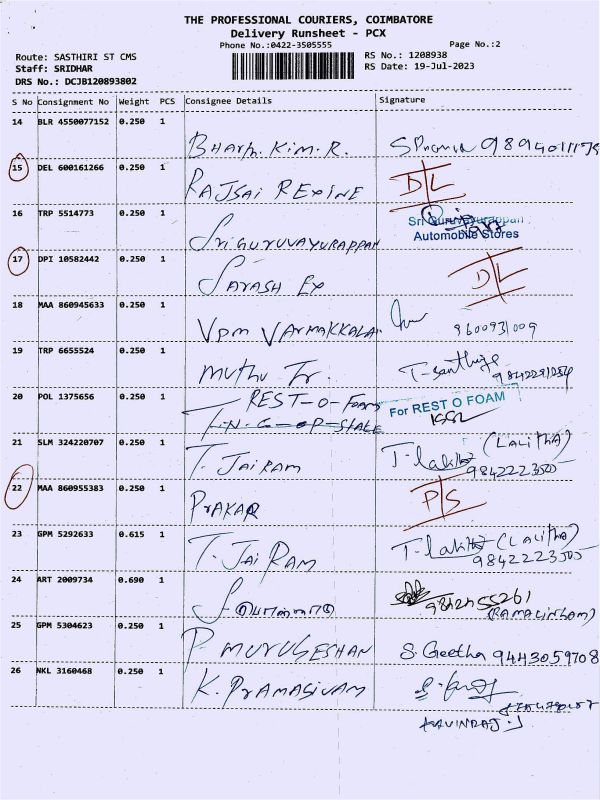 THE PROFESSIONAL COURIERS, COIMBATORE
Delivery Runsheet - PCX
Phone No.:0422-3505555
Page No.:2
Route: SASTHIRI ST CMS
RS No.: 1208938
Staff: SRIDHAR
RS Date: 19-Jul-2023
DRS No.: DCJB120893802
S No Consignment No Weight PCS Consignee Details Signature
14 BLR 4550077152 0.250 1
Bharh. Kim. R.
15 DEL 600161266 0.250 1
RAJSAI REXINE D/L
16 TRP 5514773 0.250 1
Sri GURUVAYURAPPAN Sri Guruvayurappan
Automobile Stores
17 DPI 10582442 0.250 1
SARASH Ex D/L
18 MAA 860945633 0.250 1
VPM VARMAKKALAI 9600931009
19 TRP 6655524 0.250 1
Muthu Tr.
20 POL 1375656 0.250 1
REST-O-FOAM For REST O FOAM
21 SLM 324220707 0.250 1
T. JAIRAM T. (LALITHA)
9842223505
22 MAA 860955383 0.250 1
PRAKAR P/S
23 GPM 5292633 0.615 1
T. JAI RAM T. (LALITHA)
9842223505
24 ART 2009734 0.690 1
25 GPM 5304623 0.250 1
P. MURUGESHAN S. Geetha 9443059708
26 NKL 3160468 0.250 1
K. PRAMASIVAM
KAVINDRAJ. J